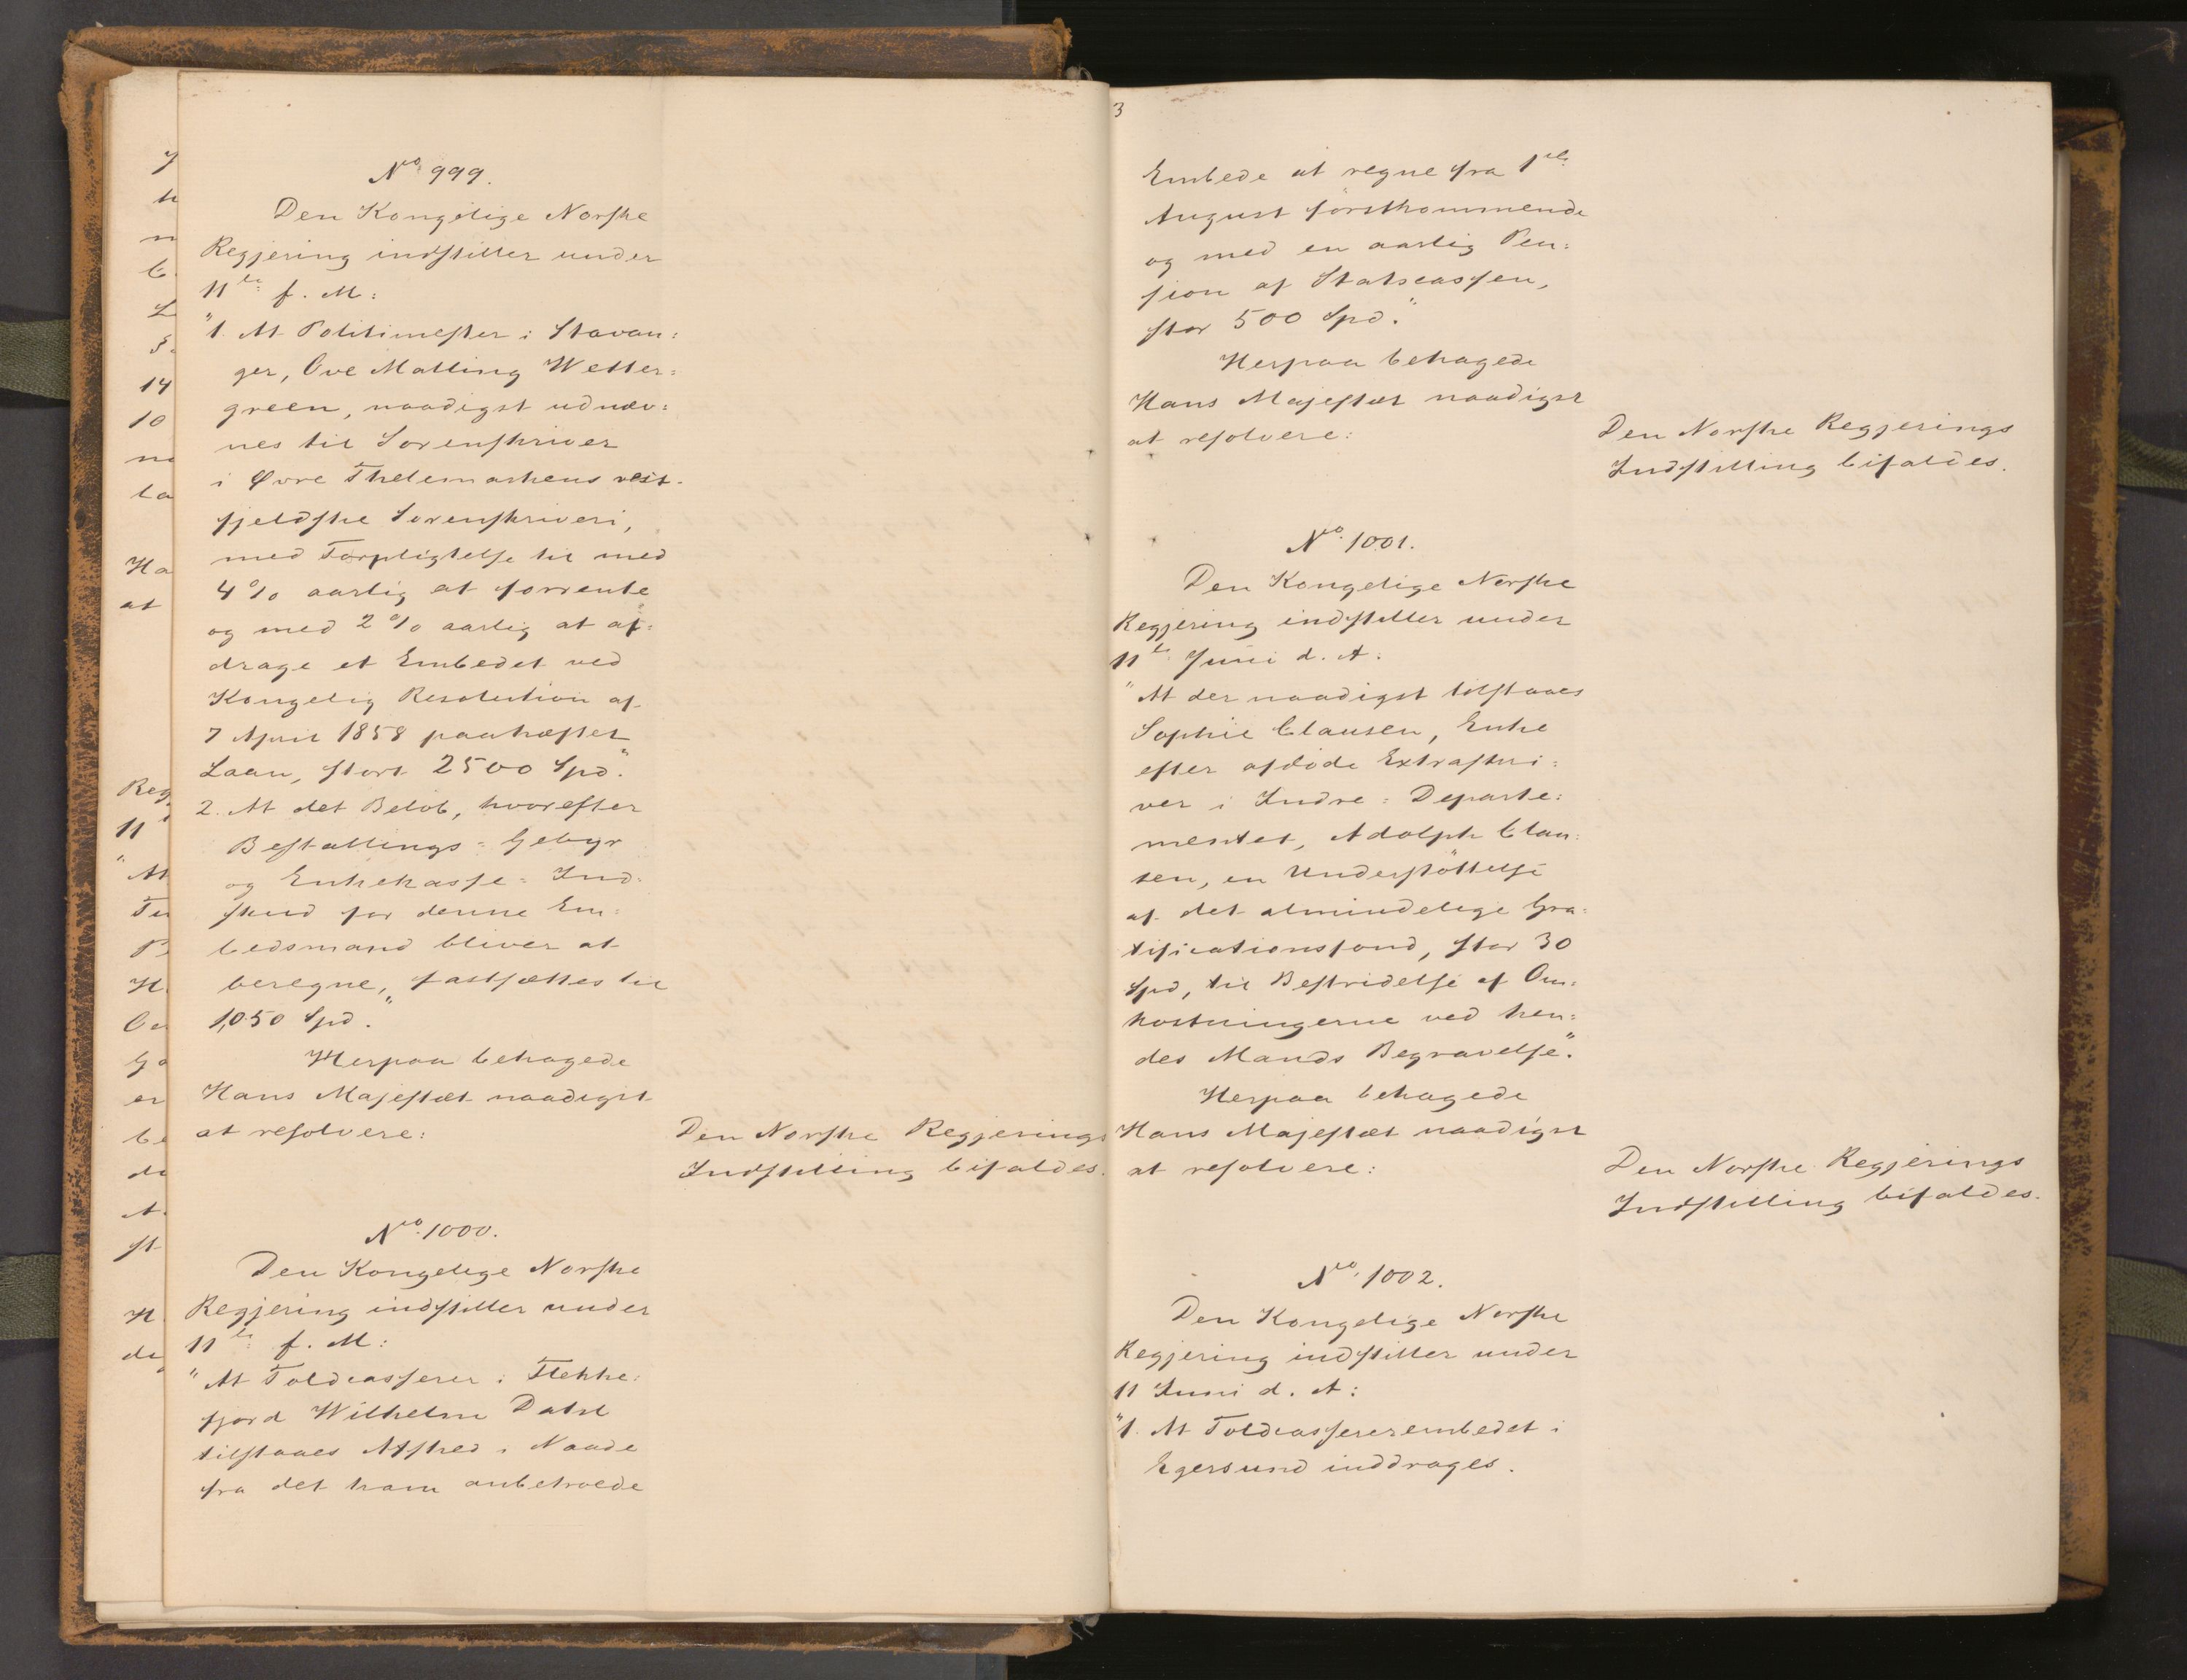 No 999.
Den Kongelige Norske
Regjering indstiller under
11te f. M:
"1. At Politimester i Stavan:
ger, Ove Malling Wetter:
green, naadigst udnæv:
nes til Sorenskriver
i Øvre Thelemarkens vest-
fjeldske Sorenskriveri,
med Forpligtelse til med
4% aarlig at forrente
og med 2% aarlig at af:
drage et Embedet ved
Kongelig Resolution af
7 April 1858 paahæftet
Laan, stort 2500 Spd."
2. At det Beløb, hvorefter
Bestallings-Gebyr
og Enkekasse-Ind:
skud for denne Em:
bedsmand bliver at
beregne, fastsættes til
1,050 Spd."
Herpaa behagede
Hans Majestæt naadigst
at resolvere:
Den Norske Regjerings
Indstilling bifaldes.
No 1000.
Den Kongelige Norske
Regjering indstiller under
11te f. M:
"At Toldcasserer i Flekke:
fjord Wilhelm Dahl
tilstaaes Afsked i Naade
fra det ham anbetroede
3
Embede at regne fra 1ste
August förstkommende
og med en aarlig Pen:
sion af Statscassen,
stor 500 Spd."
Herpaa behagede
Hans Majestæt naadigst
at resolvere:
Den Norske Regjerings
Indstilling bifaldes.
No 1001.
Den Kongelige Norske
Regjering indstiller under
11te Juni d. A:
"At der naadigst tilstaaes
Sophie Clausen, Enke
efter afdöde Extraskri:
ver i Indre-Departe:
mentet, Adolph Clau:
sen, en Understöttelse
af det almindelige Gra:
tificationsfond, stor 30
Spd, til Bestridelse af Om:
kostningerne ved hen:
des Mands Begravelse."
Herpaa behagede
Hans Majestæt naadigst
at resolvere:
Den Norske Regjerings
Indstilling bifaldes.
No 1002.
Den Kongelige Norske
Regjering indstiller under
11 Juni d. A:
"1. At Toldcassererembedet i
Egersund inddrages.